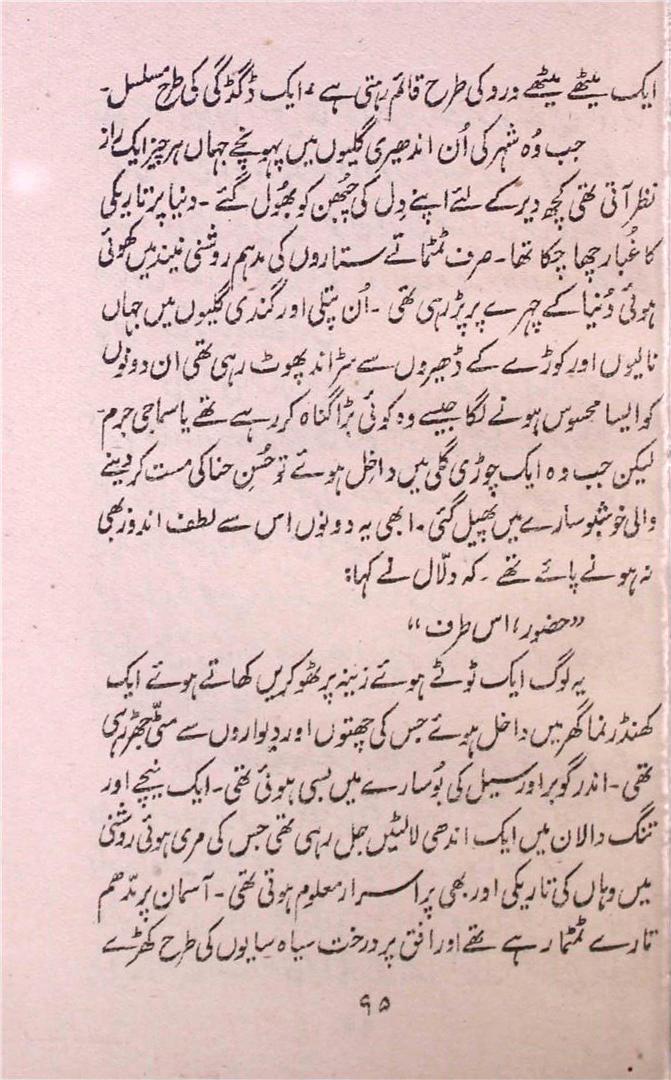 ایک میٹھے میٹھے درد کی طرح قائم رہتی ہے، ایک ڈگڈگی کی طرح مسلسل۔
جب وُہ شہر کی اُن اندھیری گلیوں میں پہونچے جہاں ہر چیز ایک راز
نظر آتی تھی کچھ دیر کے لئے اپنے دِل کی چُبھن کو بھُول گئے۔ دنیا پر تاریکی
کا غُبار چھا چکا تھا۔ صرف ٹمٹماتے ستاروں کی مدہم روشنی نیند میں کھوئی
ہوئی دُنیا کے چہرے پر پڑ رہی تھی۔ اُن پتلی اور گندی گلیوں میں جہاں
نالیوں اور کوڑے کے ڈھیروں سے سڑاند پھوٹ رہی تھی ان دونوں
کو ایسا محسوس ہونے لگا جیسے وہ کوئی بڑا گناہ کر رہے تھے یا سماجی جرم۔
لیکن جب وہ ایک چوڑی گلی میں داخل ہوئے تو حُسنِ حنا کی مست کر دینے
والی خوشبُو سارے میں پھیل گئی۔ ابھی یہ دونوں اس سے لطف اندوز بھی
نہ ہونے پائے تھے۔ کہ دلّال نے کہا:
”حضور، اس طرف“
یہ لوگ ایک ٹوٹے ہوئے زینہ پر ٹھوکریں کھاتے ہوئے ایک
کھنڈر نما گھر میں داخل ہوئے جس کی چھتوں اور دیواروں سے مٹّی جھڑ رہی
تھی۔ اندر گوبر اور سیل کی بُو سارے میں بسی ہوئی تھی۔ ایک نیچے اور
تنگ دالان میں ایک اندھی لالٹین جل رہی تھی جس کی مری ہوئی روشنی
میں وہاں کی تاریکی اور بھی پر اسرار معلوم ہوتی تھی۔ آسمان پر مدّھم
تارے ٹمٹما رہے تھے اور افق پر درخت سیاہ سایوں کی طرح کھڑے
۹۵